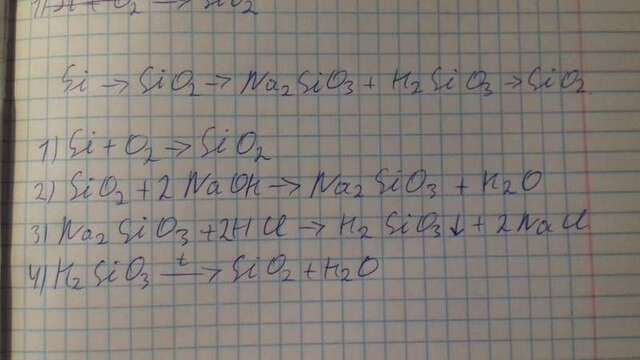 1) Si + O₂ → SiO₂
Si → SiO₂ → Na₂SiO₃ + H₂SiO₃ → SiO₂
1) Si + O₂ → SiO₂
2) SiO₂ + 2 NaOH → Na₂SiO₃ + H₂O
3) Na₂SiO₃ + 2HCl → H₂SiO₃↓ + 2NaCl
4) H₂SiO₃ t→ SiO₂ + H₂O